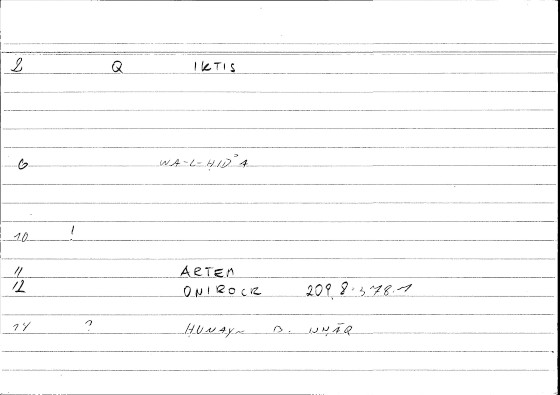 2 Q IKTIS
6 WA-L-ḤID'A
10 !
11 ARTEM
12 ONIROCR 209,8-378.1
14 ? ḤUNAYN B.